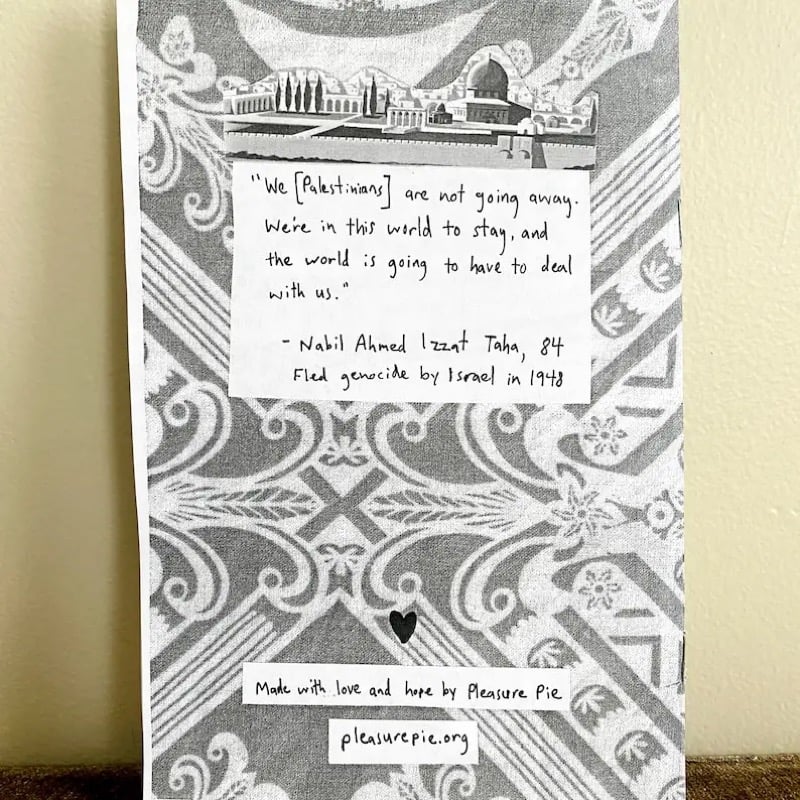 "We [Palestinians] are not going away.
We're in this world to stay, and
the world is going to have to deal
with us."
- Nabil Ahmed Izzat Taha, 84
Fled genocide by Israel in 1948
Made with love and hope by Pleasure Pie
pleasurepie.org